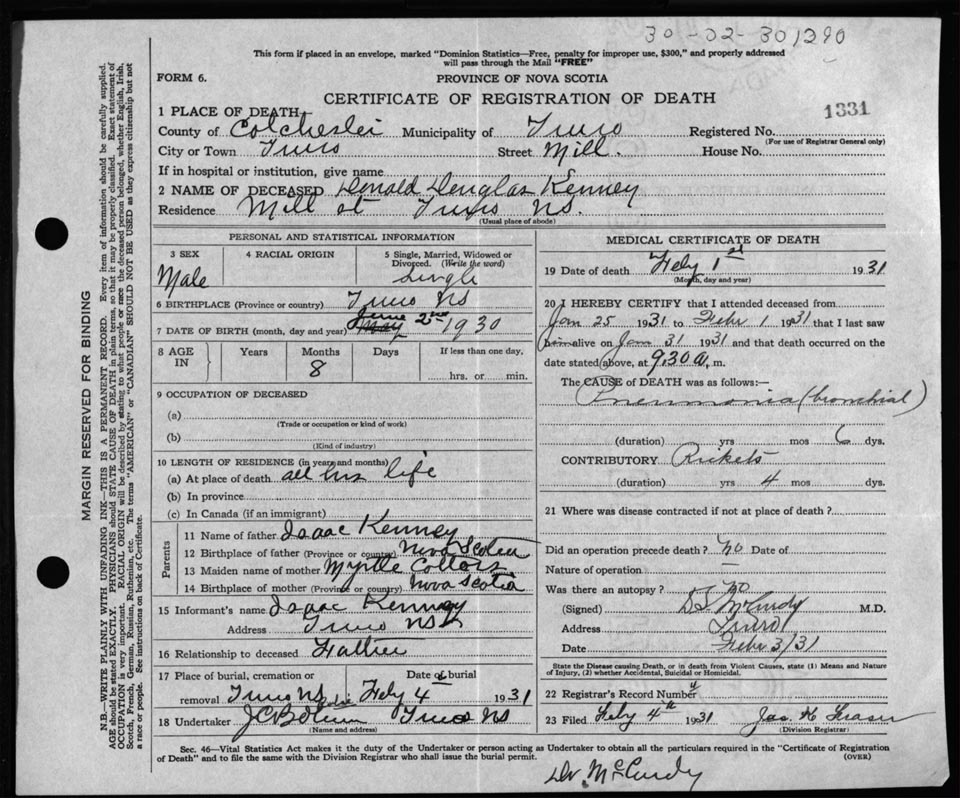 30-02-301290
This form if placed in an envelope, marked "Dominion Statistics—Free, penalty for improper use, $300," and properly addressed
will pass through the Mail "FREE"
FORM 6.
PROVINCE OF NOVA SCOTIA
CERTIFICATE OF REGISTRATION OF DEATH
1331
1 PLACE OF DEATH
County of Colchester Municipality of Truro Registered No.
(For use of Registrar General only)
City or Town Truro Street Mill. House No.
If in hospital or institution, give name
2 NAME OF DECEASED Donald Douglas Kenney
Residence Mill st Truro NS.
(Usual place of abode)
PERSONAL AND STATISTICAL INFORMATION
3 SEX 4 RACIAL ORIGIN 5 Single, Married, Widowed or
Divorced. (Write the word)
Male Single
6 BIRTHPLACE (Province or country) Truro NS
7 DATE OF BIRTH (month, day and year) May June 2nd 1930
8 AGE IN Years Months Days If less than one day,
8 hrs. or min.
9 OCCUPATION OF DECEASED
(a)
(Trade or occupation or kind of work)
(b)
(Kind of industry)
10 LENGTH OF RESIDENCE (in years and months)
(a) At place of death all his life
(b) In province
(c) In Canada (if an immigrant)
Parents
11 Name of father Isaac Kenney
12 Birthplace of father (Province or country) Nova Scotia
13 Maiden name of mother Myrtle
14 Birthplace of mother (Province or country) Nova Scotia
15 Informant's name Isaac Kenney
Address Truro NS
16 Relationship to deceased Father
17 Place of burial, cremation or Date of burial
removal Truro NS Feby 4 1931
18 Undertaker Truro NS
(Name and address)
MEDICAL CERTIFICATE OF DEATH
19 Date of death Feby 1st 1931
(Month, day and year)
20 I HEREBY CERTIFY that I attended deceased from
Jan 25 1931 to Febr 1 1931 that I last saw
him alive on Jan 31 1931 and that death occurred on the
date stated above, at 9.30 a, m.
The CAUSE of DEATH was as follows:—
Pneumonia (bronchial)
(duration) yrs mos 6 dys.
CONTRIBUTORY Rickets
(duration) yrs 4 mos dys.
21 Where was disease contracted if not at place of death?
Did an operation precede death? No Date of
Nature of operation
Was there an autopsy? No
(Signed) McCurdy M.D.
Address Truro
Date Febr 3/31
State the Disease causing Death, or in death from Violent Causes, state (1) Means and Nature
of Injury, (2) whether Accidental, Suicidal or Homicidal.
22 Registrar's Record Number
23 Filed Feby 4th 1931 Jas. H Fraser
(Division Registrar)
Sec. 46—Vital Statistics Act makes it the duty of the Undertaker or person acting as Undertaker to obtain all the particulars required in the "Certificate of Registration
of Death" and to file the same with the Division Registrar who shall issue the burial permit. (OVER)
Dr. McCurdy
MARGIN RESERVED FOR BINDING
N.B.—WRITE PLAINLY WITH UNFADING INK—THIS IS A PERMANENT RECORD. Every item of information should be carefully supplied.
AGE should be stated EXACTLY. PHYSICIANS should STATE CAUSE OF DEATH in plain terms, so that it may be properly classified. Exact statement of
OCCUPATION is very important. RACIAL ORIGIN will be described by stating to what people or race the deceased person belonged, whether English, Irish,
Scotch, French, German, Russian, Ruthenian, etc. The terms "AMERICAN" or "CANADIAN" SHOULD NOT BE USED as they express citizenship but not
a race or people. See instructions on back of Certificate.